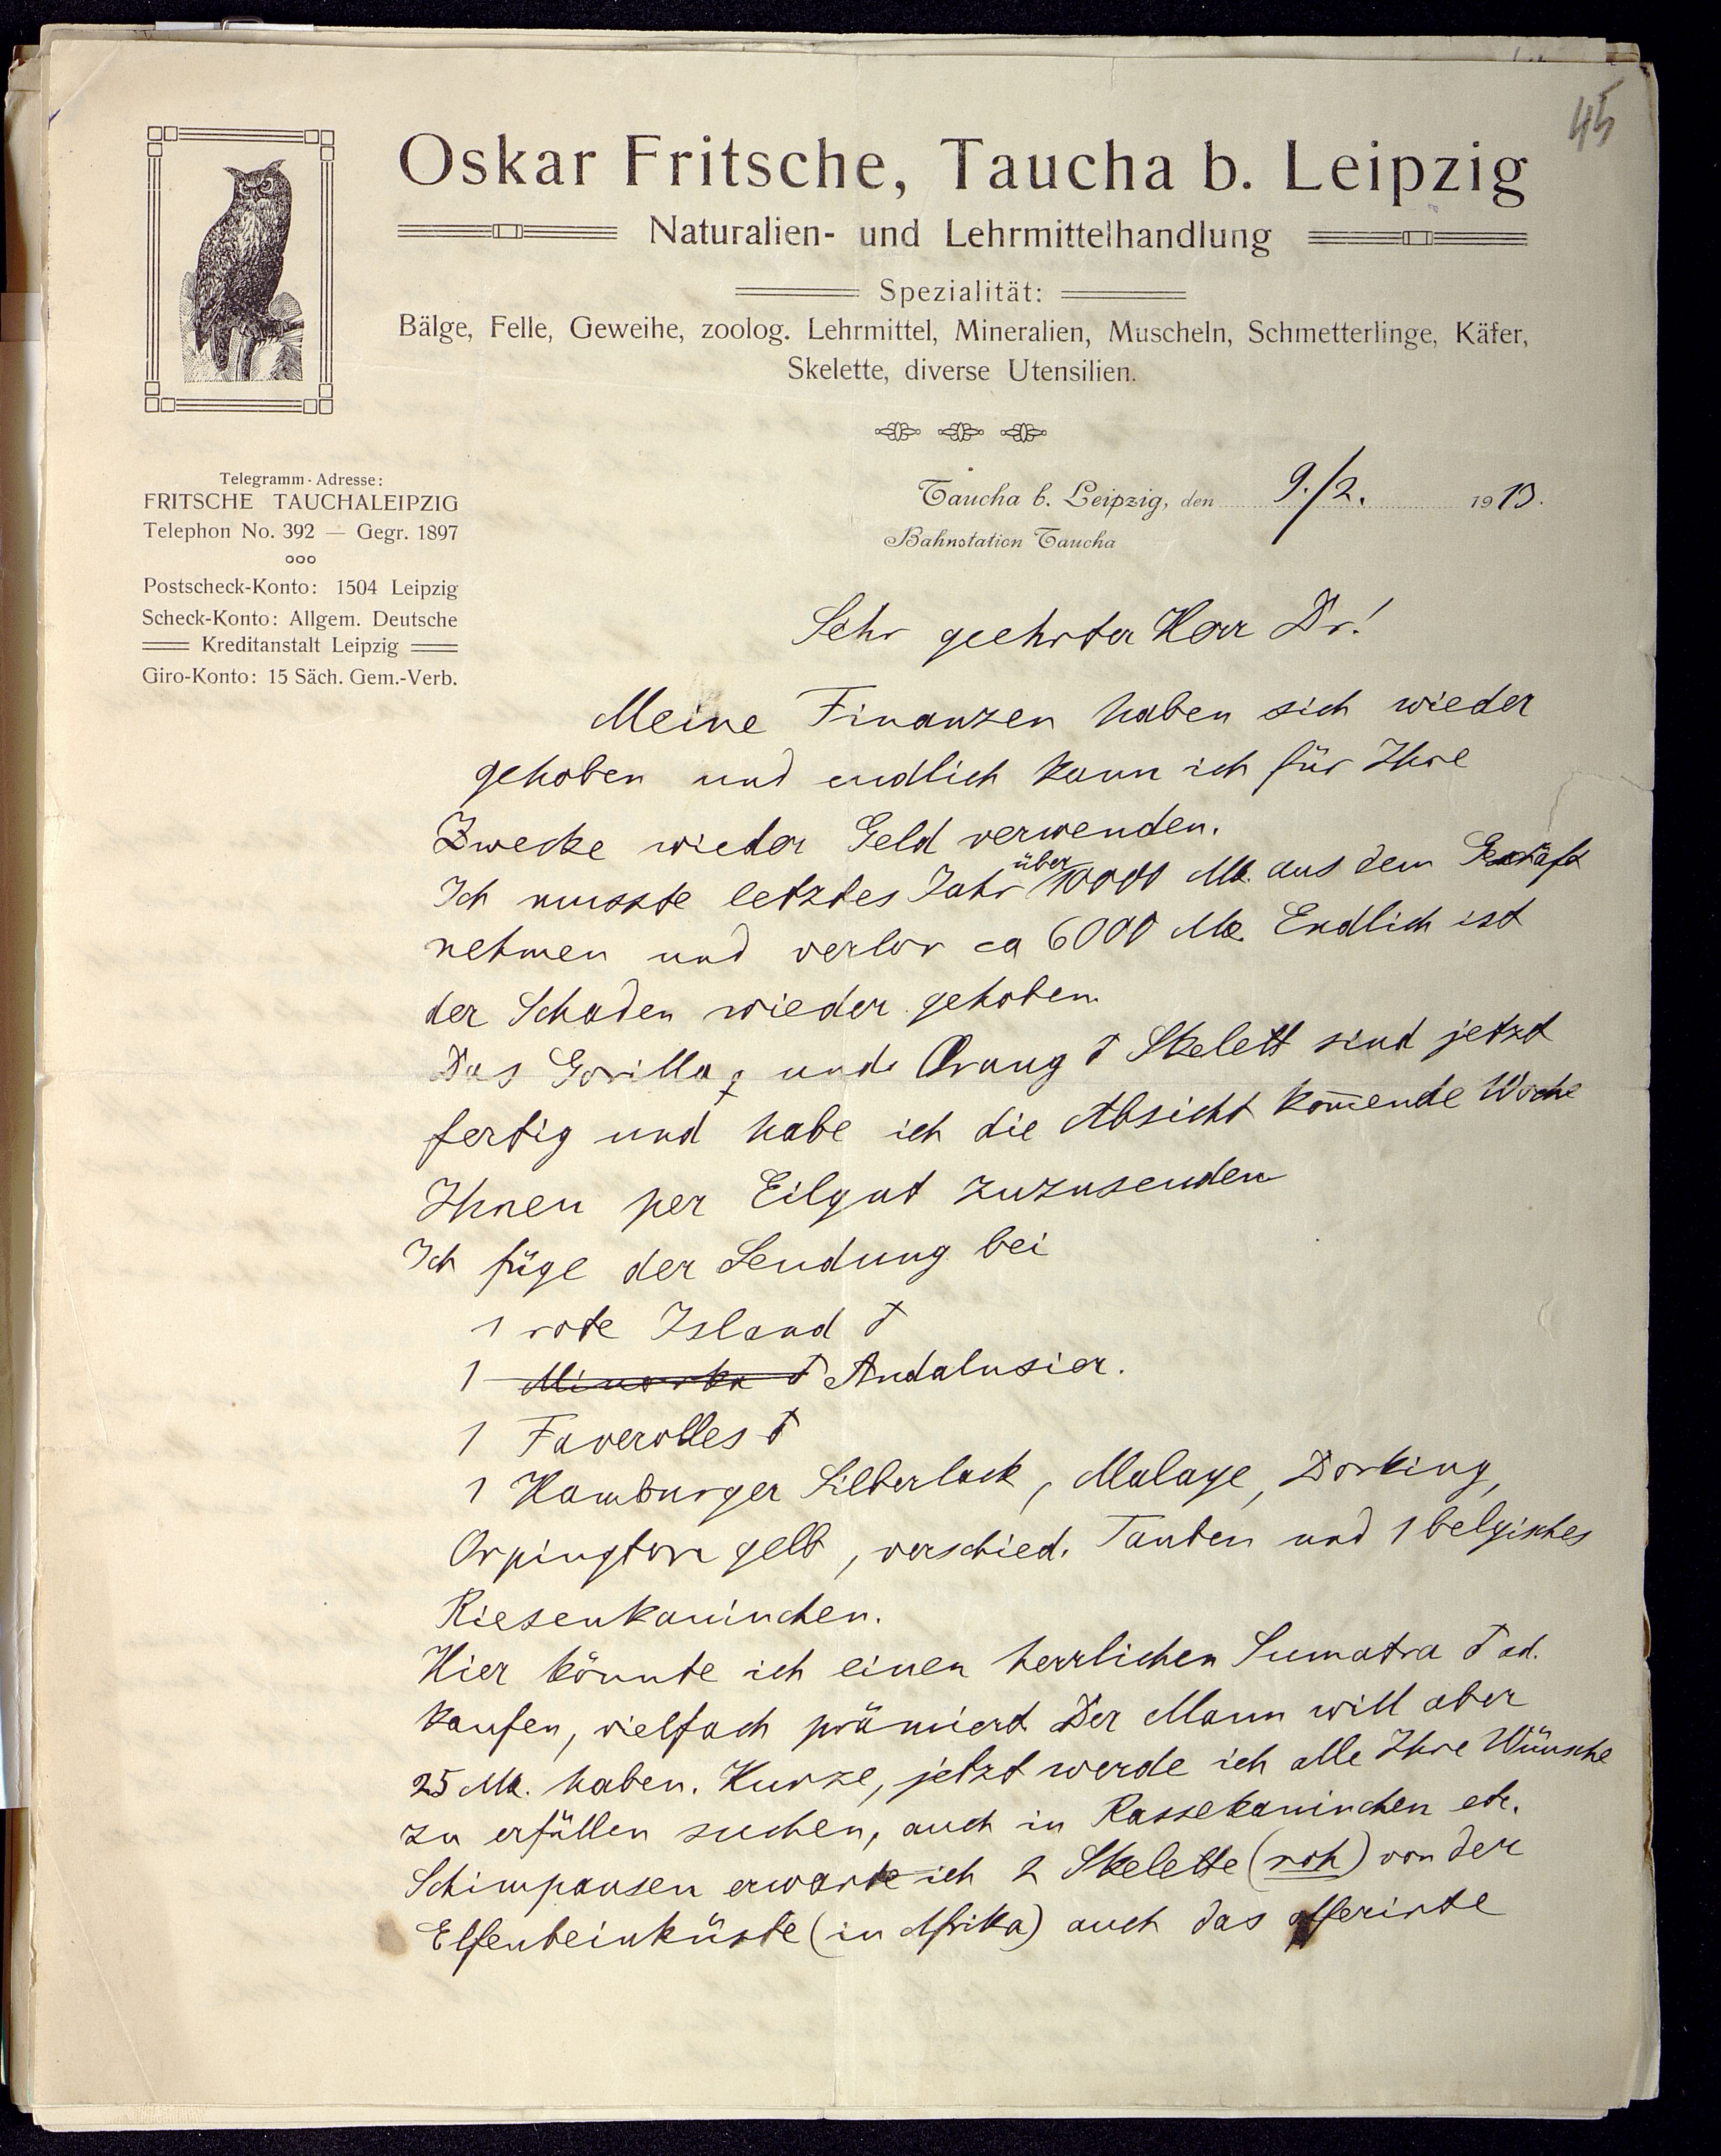 45
Oskar Fritsche, Taucha b. Leipzig
Naturalien- und Lehrmittelhandlung
Spezialität:
Bälge, Felle, Geweihe, zoolog. Lehrmittel, Mineralien, Muscheln, Schmetterlinge, Käfer,
Skelette, diverse Utensilien.
Telegramm-Adresse:
FRITSCHE TAUCHALEIPZIG
Telephon No. 392 — Gegr. 1897
Postscheck-Konto: 1504 Leipzig
Scheck-Konto: Allgem. Deutsche
Kreditanstalt Leipzig
Giro-Konto: 15 Säch. Gem.-Verb.
Taucha b. Leipzig, den 9./2. 1913.
Bahnstation Taucha
Sehr geehrter Herr Dr!
Meine Finanzen haben sich wieder
gehoben und endlich kann ich für Ihre
Zwecke wieder Geld verwenden.
Ich musste letztes Jahr über 10000 Mk. aus dem Geschäft
nehmen und verlor ca 6000 Mk. Endlich ist
der Schaden wieder gehoben.
Das Gorilla ♀ und Orang ♂ Skelett sind jetzt
fertig und habe ich die Absicht kom̄ende Woche
Ihnen per Eilgut zuzusenden
Ich füge der Sendung bei
1 rote Island ♂
1 Minorka ♂ Andalusier.
1 Faverolles ♂
1 Hamburger Silberlack, Malaye, Dorking,
Orpington gelb, verschied. Tauben und 1 belgisches
Riesenkaninchen.
Hier könnte ich einen herrlichen Sumatra ♂ ad.
kaufen, vielfach prämiert Der Mann will aber
25 Mk. haben. Kurze, jetzt werde ich alle Ihre Wünsche
zu erfüllen suchen, auch in Rassekaninchen etc.
Schimpansen erwarte ich 2 Skelette (roh) von der
Elfenbeinküste (in Afrika) auch das offerirte